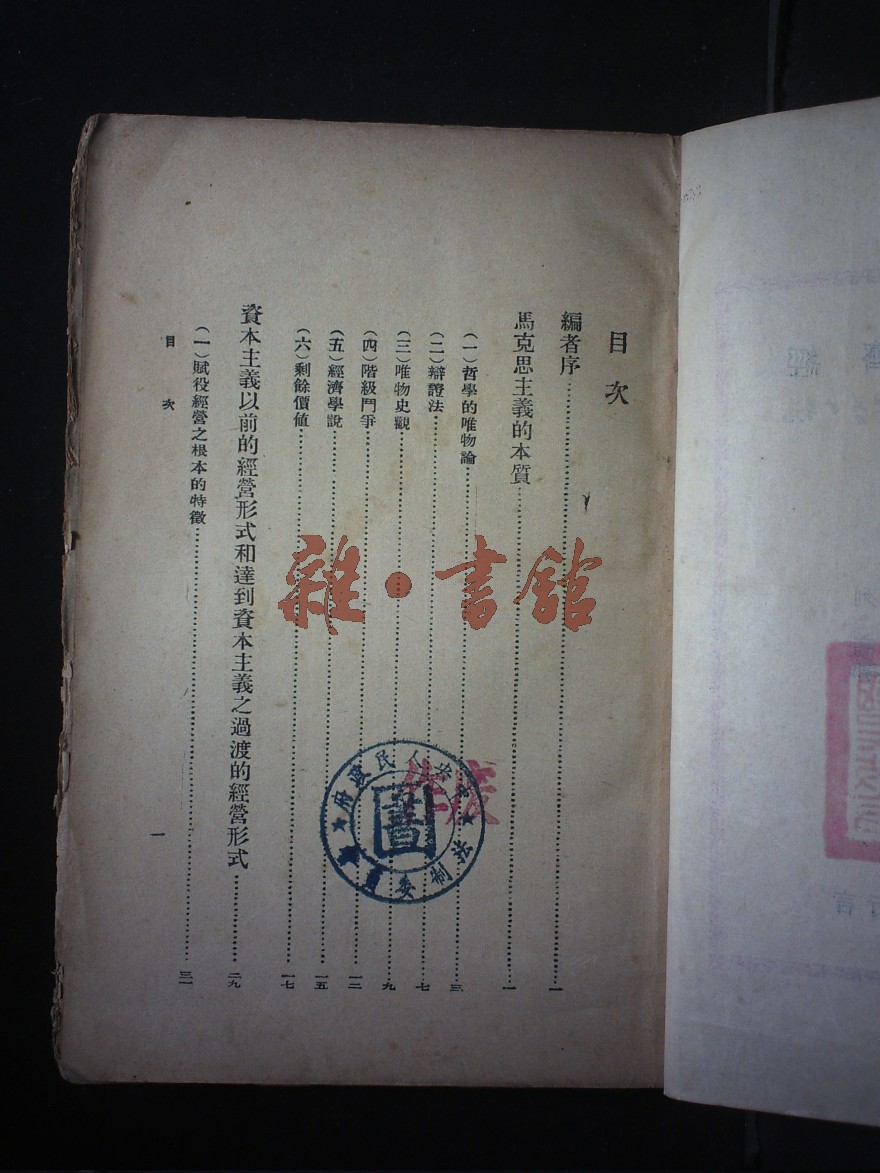 目次
編者序……一
馬克思主義的本質……一
(一)哲學的唯物論……三
(二)辯證法……七
(三)唯物史觀……九
(四)階級鬥爭……一二
(五)經濟學說……一五
(六)剩餘價値……一七
資本主義以前的經營形式和達到資本主義之過渡的經營形式……二九
(一)賦役經營之根本的特徵……三一
目次
一
雜·書館
人民政府
法制委員
圖